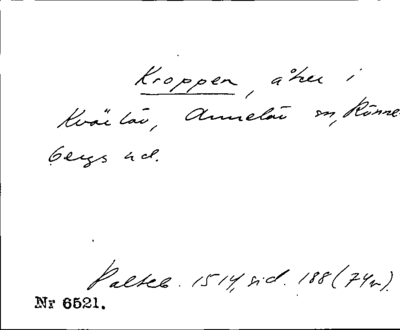 Kroppen, åker i
Kvärlöv, Annelöv sn, Rönne-
bergs hd.
Palteb. 1514, sid. 188 (74v).
Nr 6521.